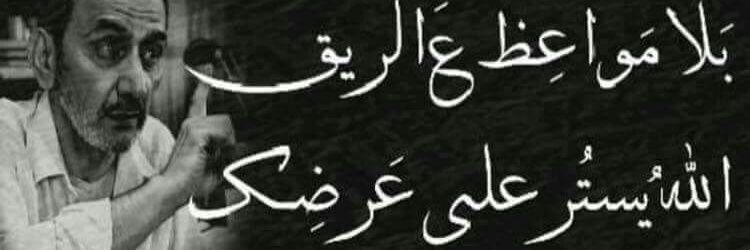 بَلا مَواعِظ عَالريق
اللهُ يستُر على عَرضِك